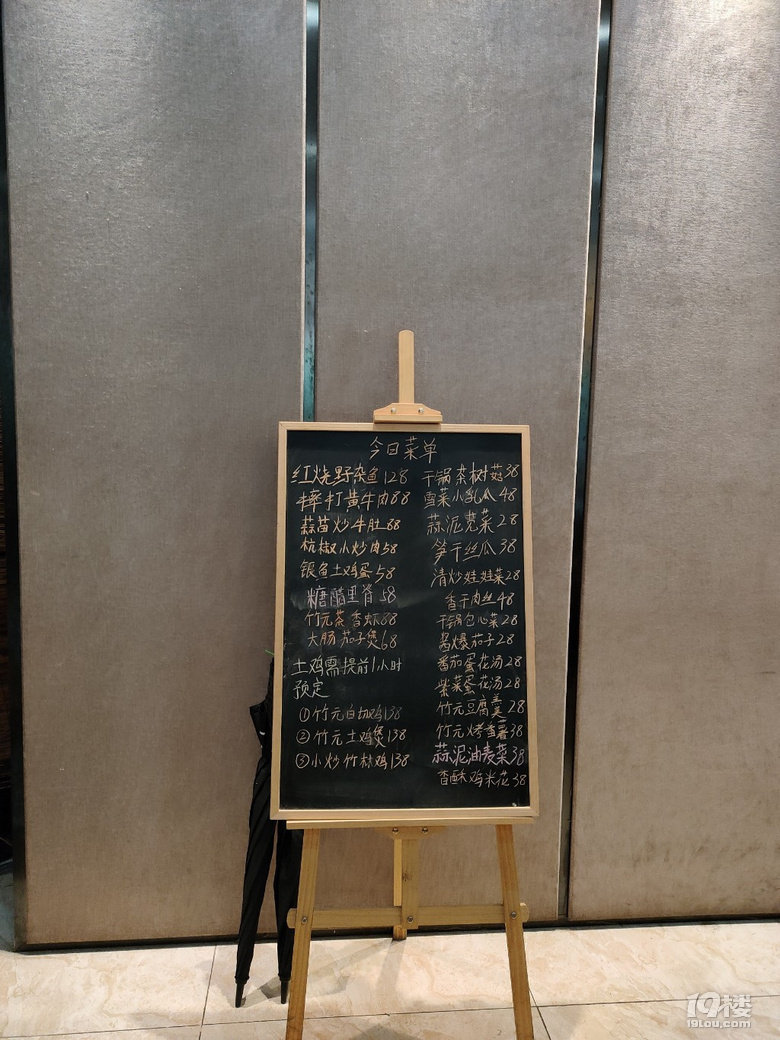 今日菜单
红烧野杂鱼128
摔打黄牛肉88
蒜苗炒牛肚88
杭椒小炒肉58
银鱼土鸡蛋58
糖醋里脊58
竹元茶香虾88
大肠茄子煲68
土鸡需提前1小时
预定
①竹元白切鸡138
②竹元土鸡煲138
③小炒竹林鸡138
干锅茶树菇38
雪菜小乳瓜48
蒜泥苋菜28
笋干丝瓜38
清炒娃娃菜28
香干肉丝48
干锅包心菜28
酱爆茄子28
番茄蛋花汤28
紫菜蛋花汤28
竹元豆腐羹28
竹元烤番薯38
蒜泥油麦菜38
香酥鸡米花38
19楼
19lou.com